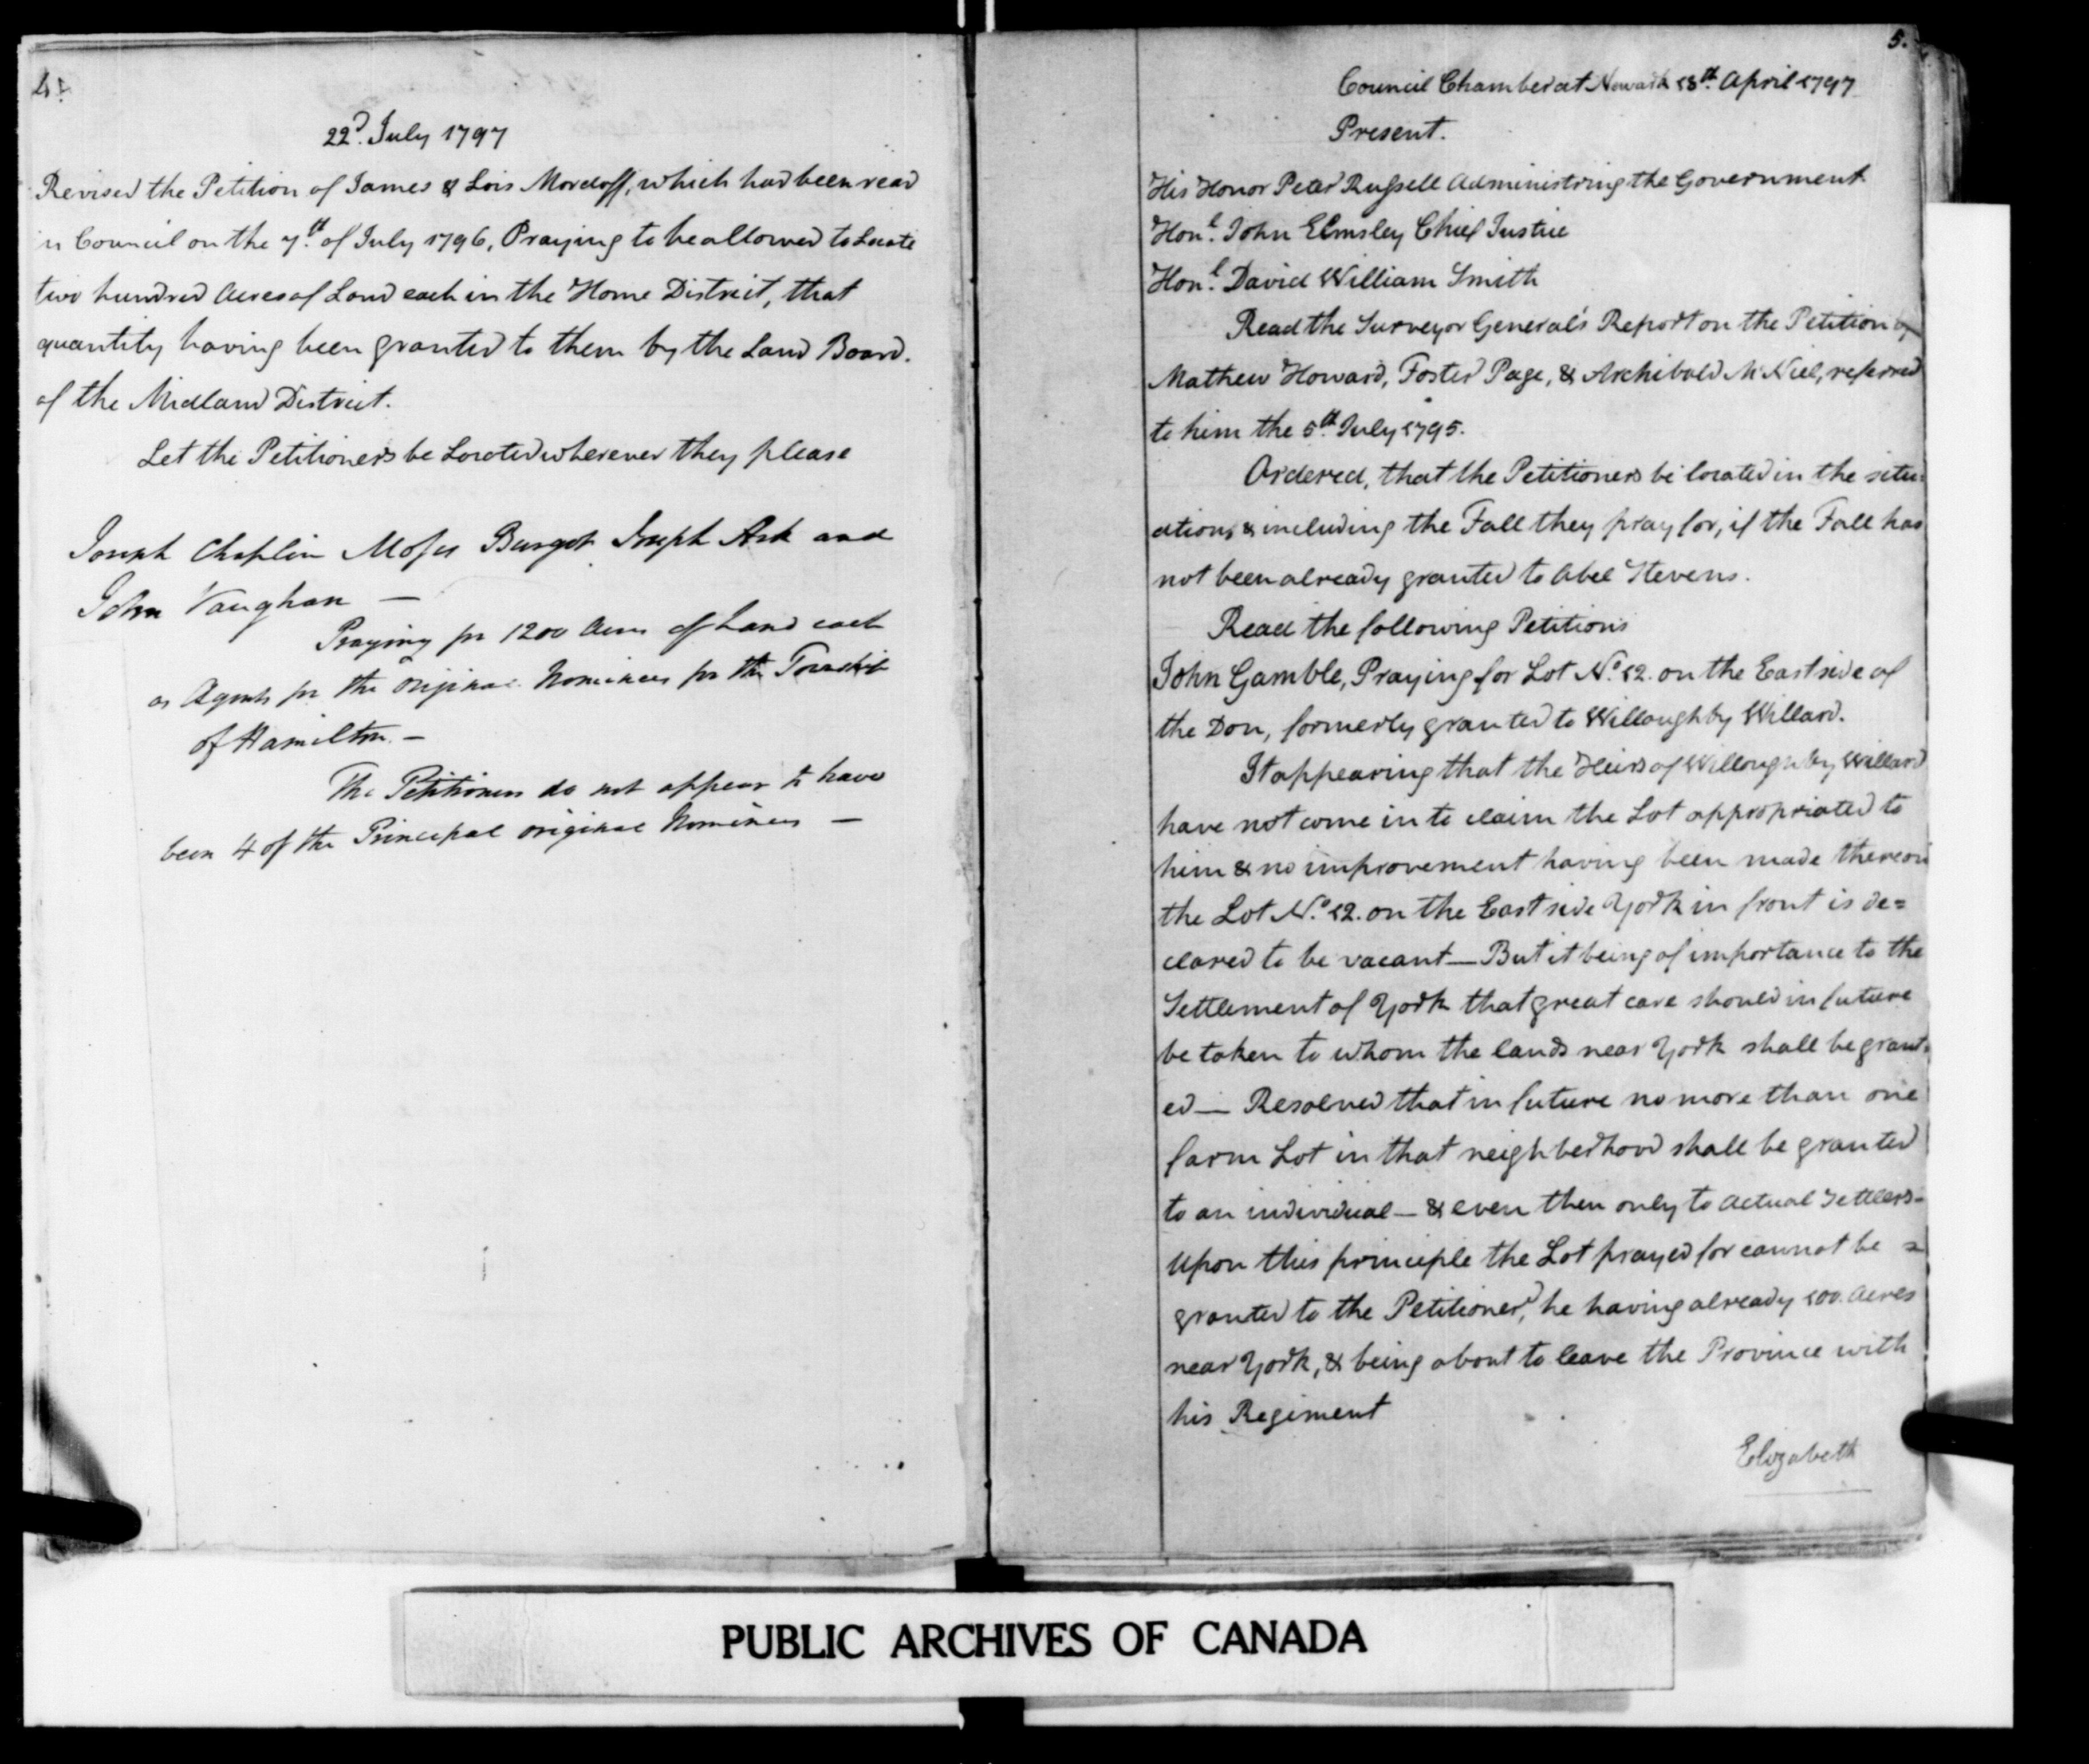 4.
22d. July 1797
Revised the Petition of James & Lois Mordoff, which had been read
in Council on the 7th. of July 1796, Praying to be allowed to Locate
two hundred Acres of Land each in the Home District, that
quantity having been granted to them by the Land Board.
of the Midland District.
Let the Petitioners be Located wherever they please
Joseph Chaplin Moses Joseph Ask and
John Vaughan —
Praying for 1200 Acres of Land each
as Agents for the original Nominees for the Township
of Hamilton. —
The Petitioners do not appear to have
been 4 of the Principal original Nominees —
5.
Council Chamber at Newark 18th. April 1797
Present.
His Honor Peter Russell Administring the Government
Honl. John Elmsley Chief Justice
Honl. David William Smith
Read the Surveyor General's Report on the Petition of
Mathew Howard, Foster Page, & Archibald McNiel, referred
to him the 5th. July 1795.
Ordered, that the Petitioners be located in the situ=
ation, & including the Fall they pray for, if the Fall has
not been already granted to Abel Stevens.
Read the following Petitions
John Gamble, Praying for Lot No. 12. on the East side of
the Don, formerly granted to Willoughby Willard.
It appearing that the Heirs of Willoughby Willard
have not come in to claim the Lot appropriated to
him & no improvement having been made thereon
the Lot No. 12. on the East side York in front is de=
clared to be vacant — But it being of importance to the
Settlement of York that great care should in future
be taken to whom the lands near York shall be grant=
ed — Resolved that in future no more than one
farm Lot in that neighberhood shall be granted
to an individual — & even then only to Actual Settlers —
Upon this principle the Lot prayed for cannot be =
granted to the Petitioner, he having already 100. Acres
near York, & being about to leave the Province with
his Regiment
Elizabeth
PUBLIC ARCHIVES OF CANADA